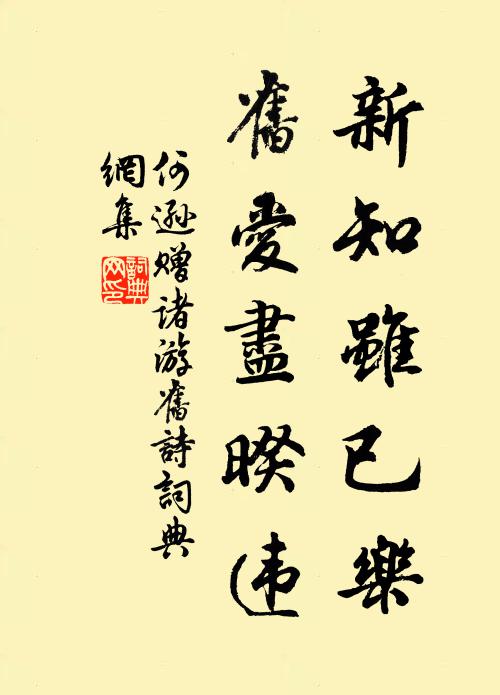 新知雖已樂
舊愛盡暌违
何遜贈諸游舊詩詞典
網集
詞典網印